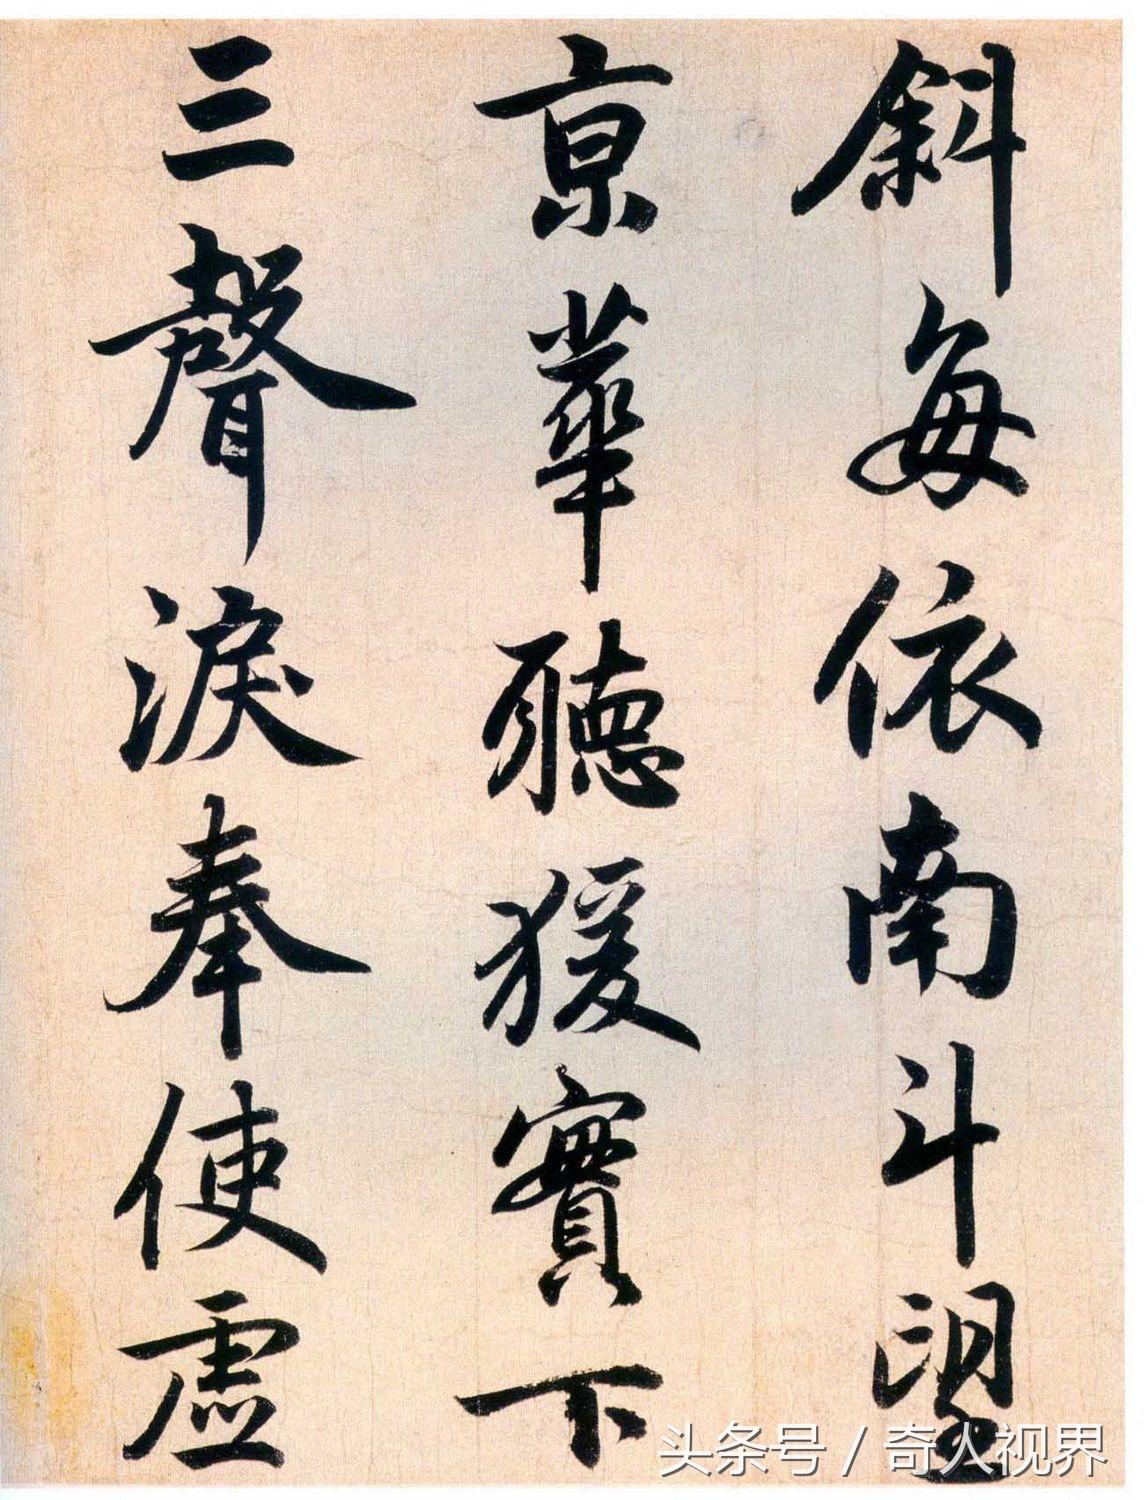 斜每依南斗望
京華聽猨實下
三聲淚奉使虛
头条号 / 奇人视界